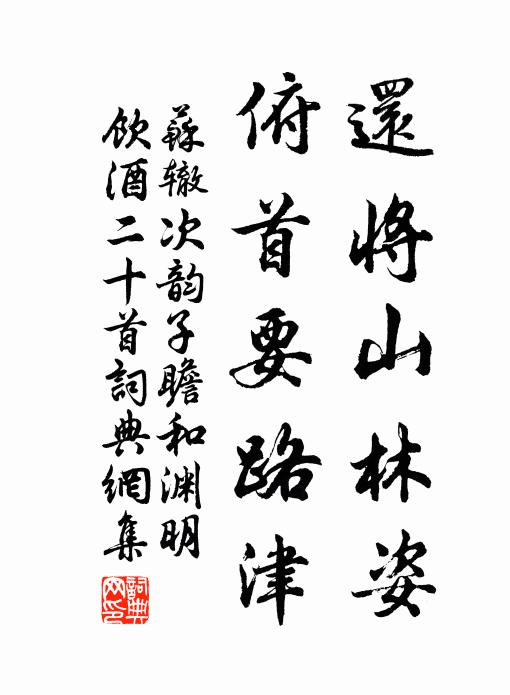 還將山林姿
俯首要路津
蘇辙次韵子瞻和渊明
飲酒二十首詞典網集